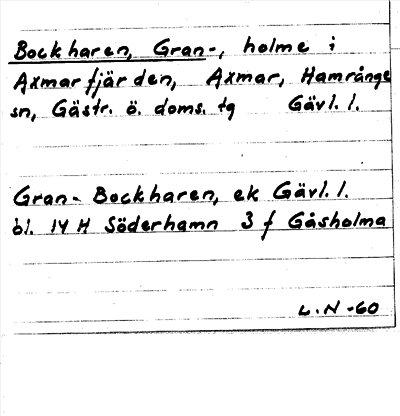 Bockharen, Gran-, holme i
Axmarfjärden, Axmar, Hamrånge
sn, Gästr. ö. doms. tg Gävl. l.
Gran- Bockharen, ek Gävl. l.
bl. 14 H Söderhamn 3 f Gåsholma
L.N -60